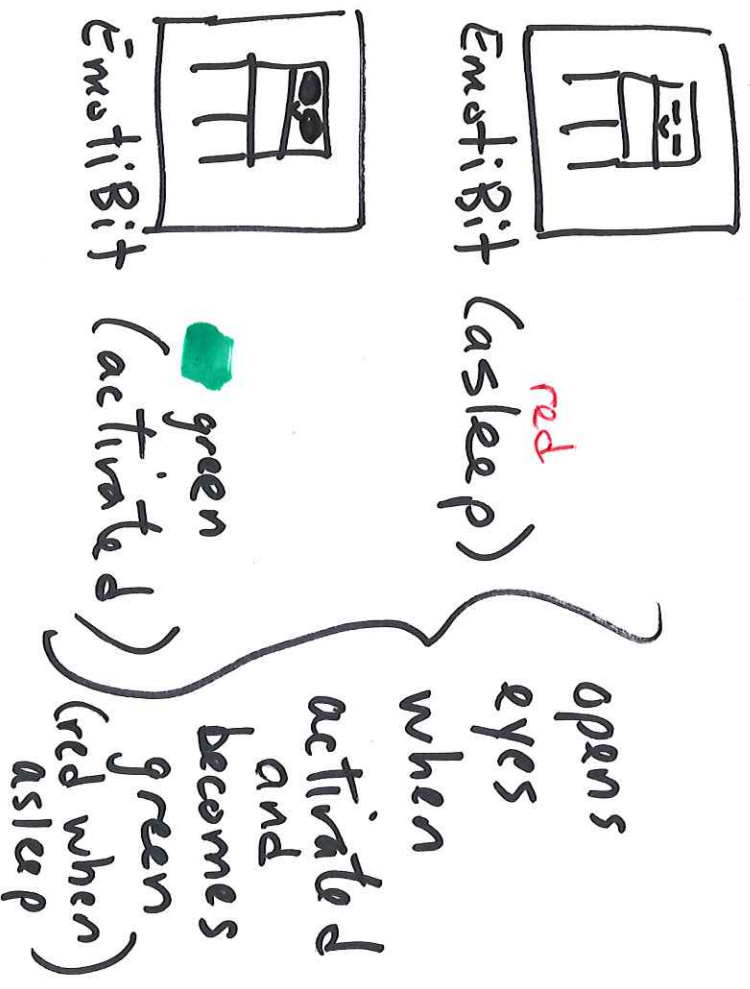 EmotiBit (asleep)
red
EmotiBit (activated)
green
opens
eyes
when
activated
and
becomes
green
(red when
asleep)